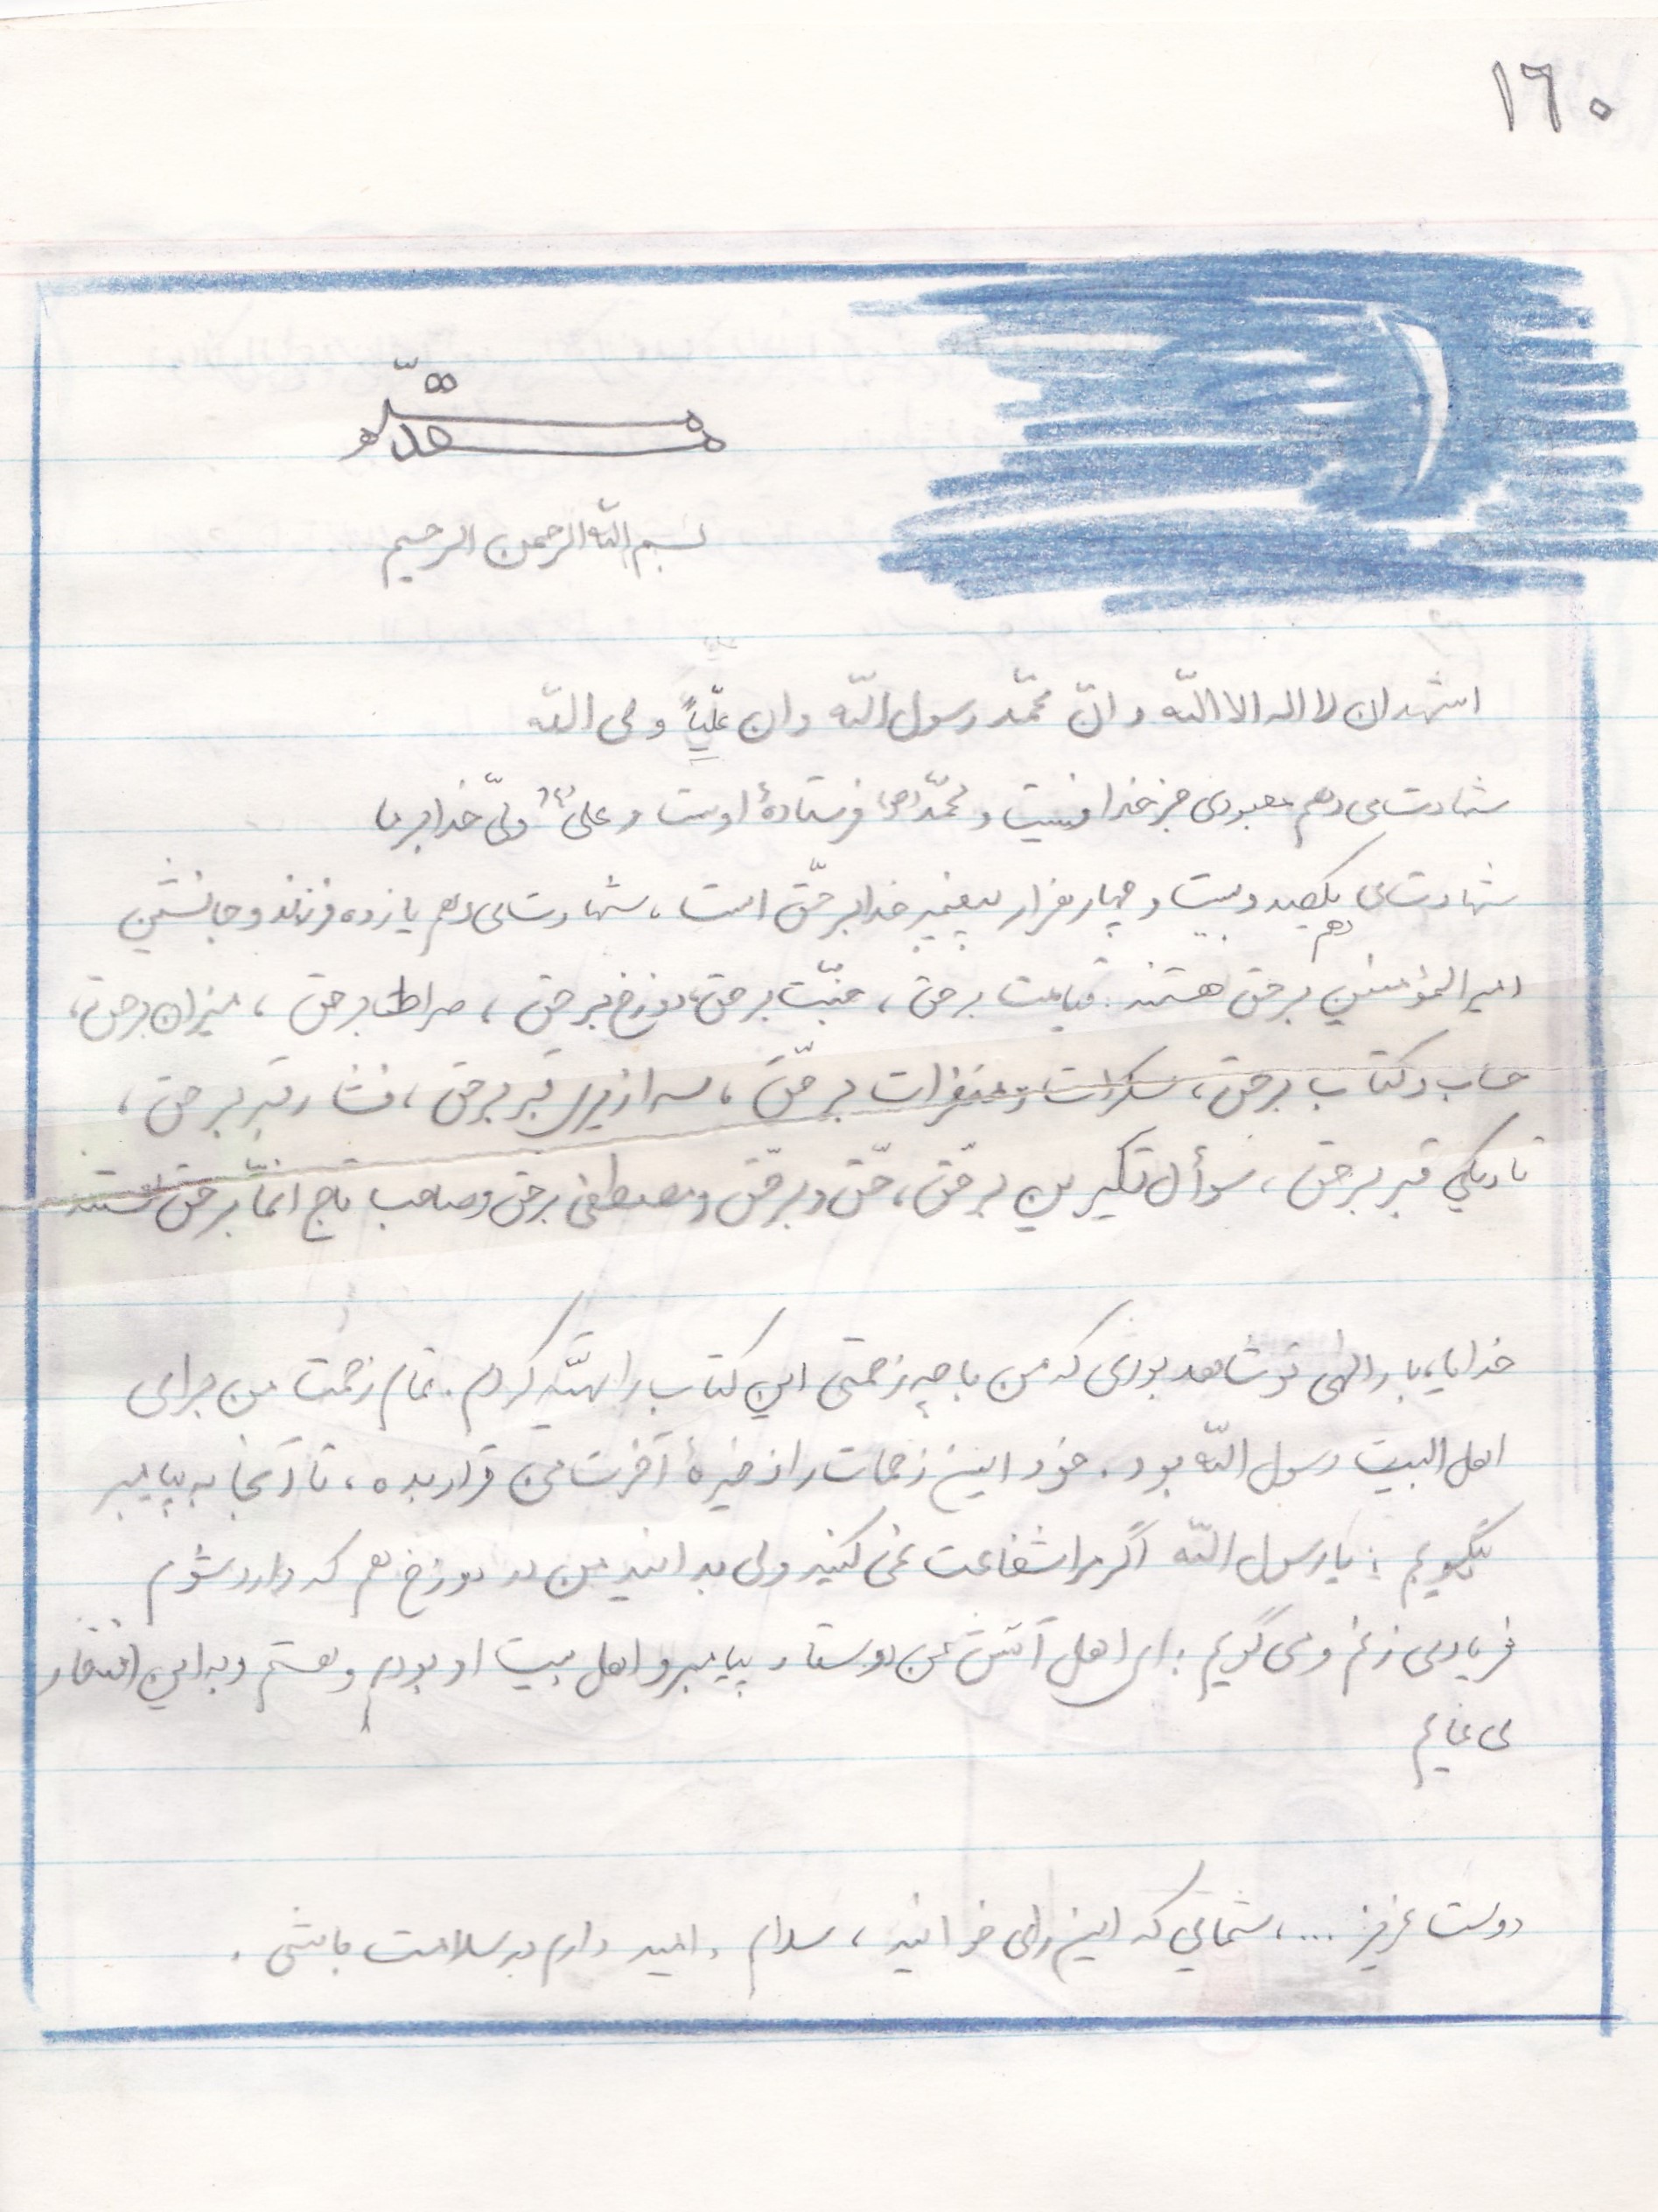 ۱۶۰
مقدّمه
بسم اللّه الرحمن الرحیم
اشهد ان لا اله الا اللّه و انّ محمّد رسول اللّه و ان علّیاً ولی اللّه
شهادت می دهم معبودی جز خدا نیست و محمّد (ص) فرستادۀ اوست و علی (ع) ولیّ خدا بر ما
شهادت می دهم یکصد و بیست و چهار هزار پیغمبر خدا بر حّق است، شهادت می دهم یازده فرزند و جانشین
امیرالمؤمنین بر حق هستند. قیامت بر حق، جنّت بر حق، دوزخ بر حق، صراط بر حق، میزان بر حق،
حساب و کتاب بر حق، سکرات و بر حّق، سرازیری قبر بر حق، فشار قبر بر حق،
تاریکی قبر بر حق، سوأل نکیرین بر حّق، حّق و بر حّق و مصطفی بر حق و صاحب تاج انّما بر حق هستند
خدایا، بار الهی تو شاهد بودی که من با چه زحمتی این کتاب را تهیّه کردم. تمام زحمت من برای
اهل البیت رسول اللّه بود. خود این زحمات را ذخیرۀ آخرت من قرار بده، تا آنجا به پیامبر
بگویم: یا رسول اللّه اگر مرا شفاعت نمی کنید ولی بدانید من در دوزخ هم که وارد شوم
فریاد می زنم و می گویم: ای اهل آتش من دوستار پیامبر و اهل بیت او بودم و هستم و به این افتخار
می نمایم
دوست عزیز ...، شمایی که این را می خوانید، سلام. امید دارم به سلامت باشی.